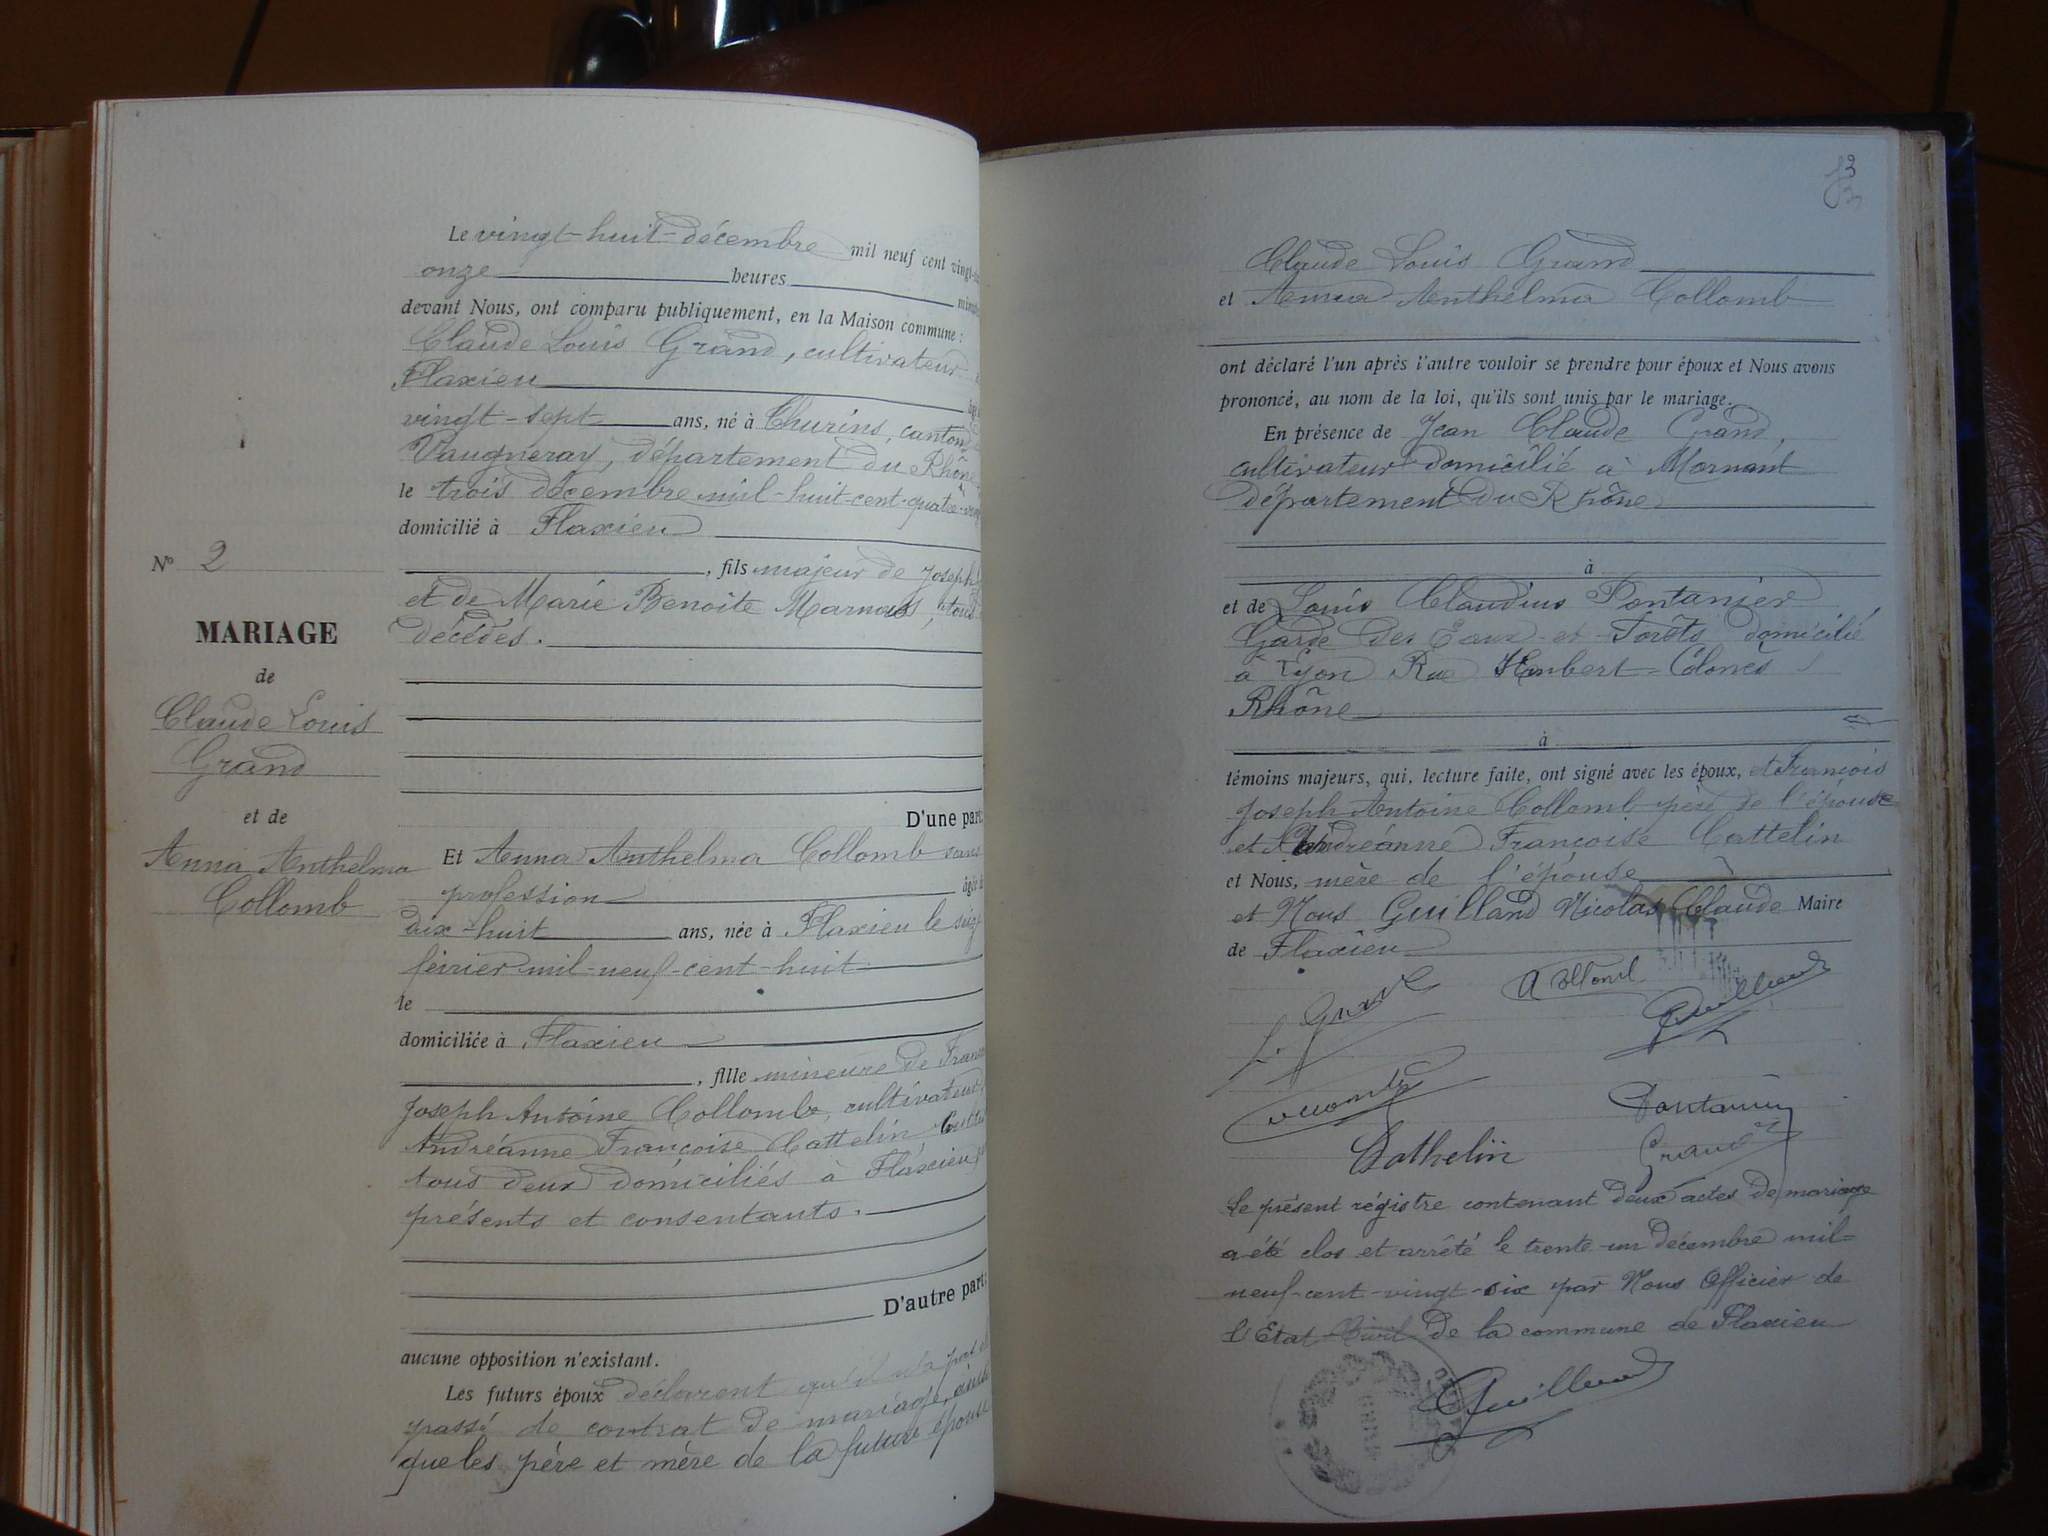 Le vingt-huit décembre mil neuf cent vingt-
onze heures
devant Nous, ont comparu publiquement, en la Maison commune :
Claude Louis Grand, cultivateur
Flaxieu
vingt-sept ans, né à Thurins, canton
Vaugneray, département du Rhône
le trois décembre mil-huit-cent-quatre-
domicilié à Flaxieu
, fils majeur de Joseph
et de Marie Benoite Marnas, tous
décédés.
N° 2
MARIAGE
de
Claude Louis
Grand
et de
Anna Anthelma
Collomb
D'une part
Et Anna Anthelma Collomb sans
profession âgée
dix-huit ans, née à Flaxieu le
février mil-neuf-cent-huit
le
domiciliée à Flaxieu
, fille mineure de
Joseph Antoine Collomb, cultivateur
Andréanne Françoise Cattelin
tous deux domiciliés à Flaxieu
présents et consentants.
D'autre part
aucune opposition n'existant.
Les futurs époux déclarent qu'il n'a pas
passé de contrat de mariage,
que les père et mère de la future épouse
Claude Louis Grand
et Anna Anthelma Collomb
ont déclaré l'un après l'autre vouloir se prendre pour époux et Nous avons
prononcé, au nom de la loi, qu'ils sont unis par le mariage.
En présence de Jean Claude Grand,
cultivateur domicilié à Mornant
département du Rhône
à
et de Louis Claudius Pontanier
Garde des Eaux-et-Forêts domicilié
à Lyon Rue
Rhône
à
témoins majeurs, qui, lecture faite, ont signé avec les époux, et François
Joseph Antoine Collomb père de l'épouse
et Andréanne Françoise Cattelin
et Nous, mère de l'épouse
et Nous Guilland Nicolas Claude Maire
de Flaxieu
Cathelin
Le présent régistre contenant deux actes de mariage
a été clos et arrêté le trente-un décembre mil-
neuf-cent-vingt-six par Nous Officier de
l'Etat Civil de la commune de Flaxieu
Guilland